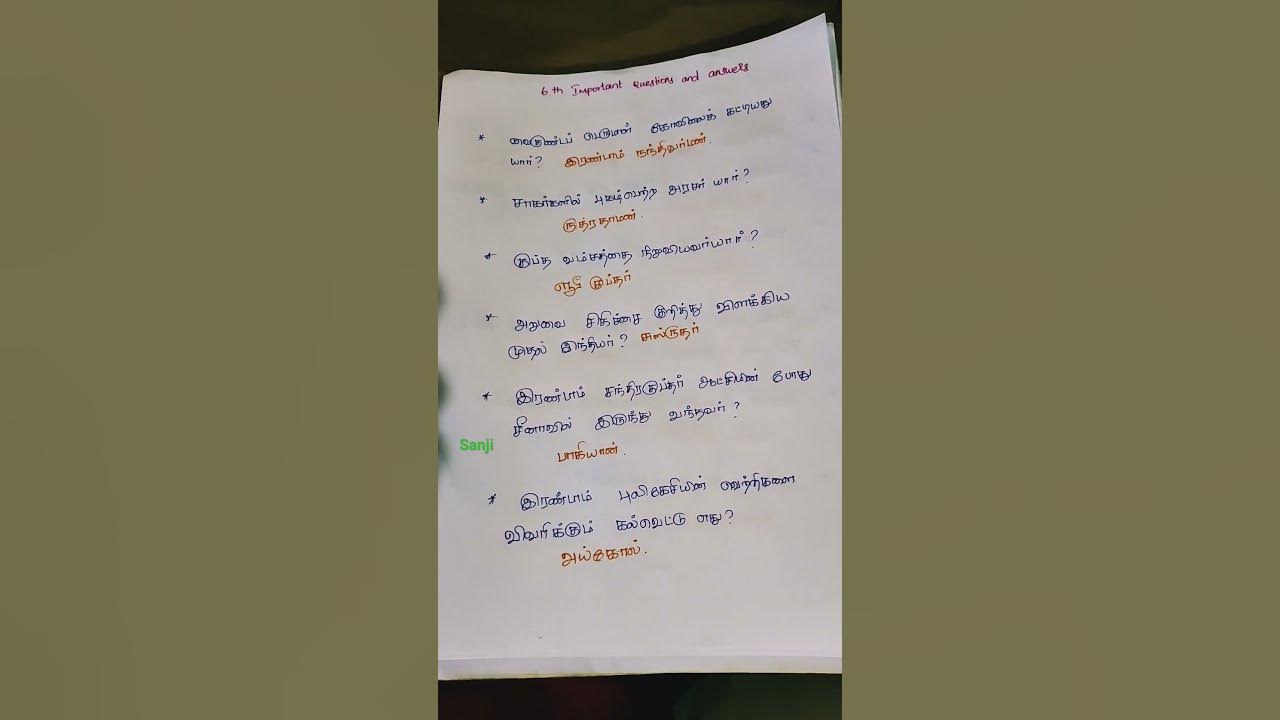 6th Important Questions and answers
* வைகுண்டப் பெருமள் கோவிலைக் கட்டியது
யார்? இரண்டாம் நந்திவர்மன்.
* சாகர்களில் புகழ்பெற்ற அரசர் யார்?
ருத்ரதாமன்.
* குப்த வம்சத்தை நிறுவியவர்யார்?
ஸ்ரீ குப்தர்
* அறுவை சிகிச்சை குறித்து விளக்கிய
முதல் இந்தியர்? சுஸ்ருதர்
* இரண்டாம் சந்திரகுப்தர் ஆட்சியின் போது
சீனாவில் இருந்து வந்தவர்?
Sanji
பாகியான்.
* இரண்டாம் புலிகேசியின் வெற்றிகளை
விவரிக்கும் கல்வெட்டு எது?
அய்கோல்.